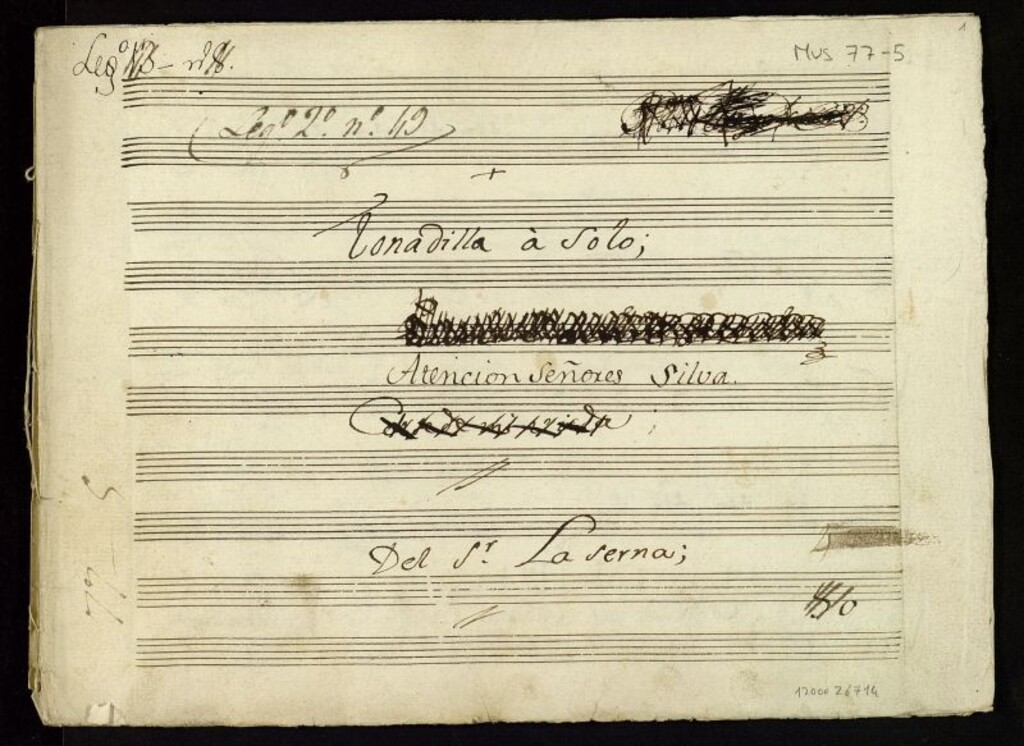 1
Leg.º
Mus 77-5
Leg.º 2.º n.º 49
+
Tonadilla à Solo;
Atencion Señores Silva.
Del S.r La serna;
1200026714